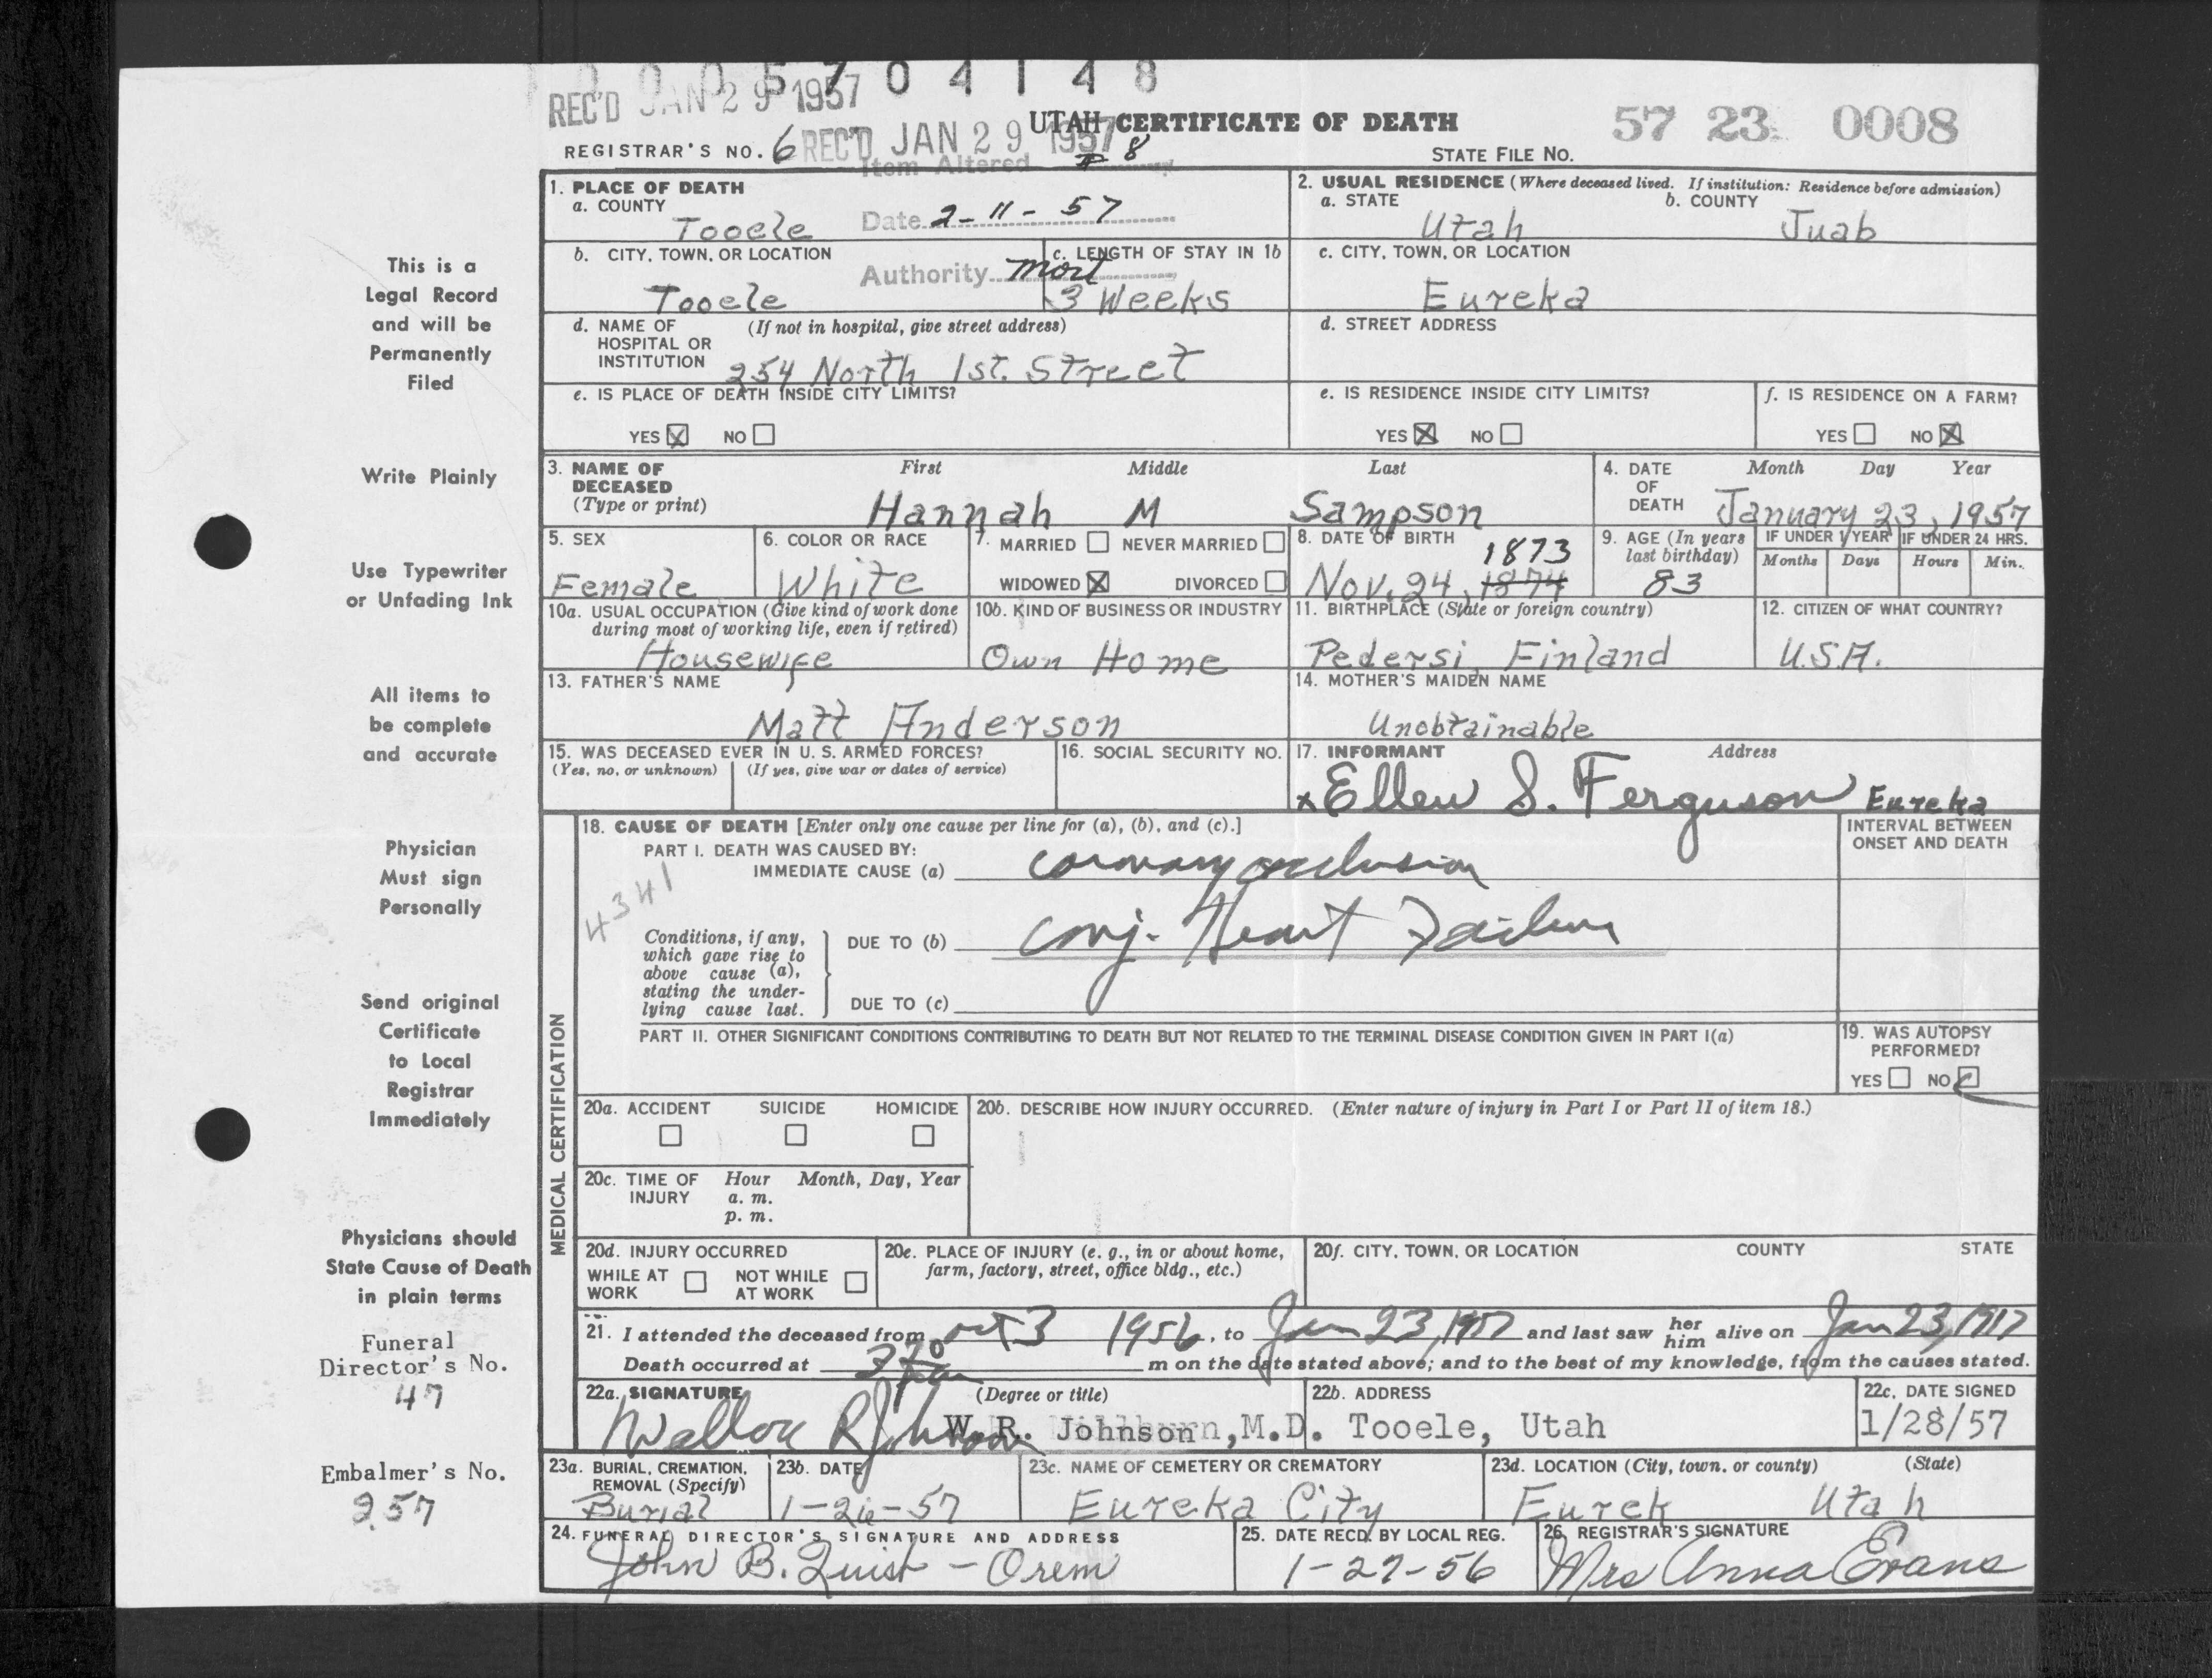 1 0 0 0 5 7 0 4 1 4 8
REC'D JAN 29 1957
UTAH CERTIFICATE OF DEATH
57 23 0008
REGISTRAR'S NO. 6 REC'D JAN 29 1957
STATE FILE NO.
Item Altered # 8
Date 2-11-57
Authority mort
1. PLACE OF DEATH
a. COUNTY
Tooele
2. USUAL RESIDENCE (Where deceased lived. If institution: Residence before admission)
a. STATE b. COUNTY
Utah Juab
b. CITY, TOWN, OR LOCATION
Tooele
c. LENGTH OF STAY IN 1b
3 Weeks
c. CITY, TOWN, OR LOCATION
Eureka
d. NAME OF (If not in hospital, give street address)
HOSPITAL OR
INSTITUTION 254 North 1st. Street
d. STREET ADDRESS
e. IS PLACE OF DEATH INSIDE CITY LIMITS?
YES X NO
e. IS RESIDENCE INSIDE CITY LIMITS?
YES X NO
f. IS RESIDENCE ON A FARM?
YES NO X
3. NAME OF First Middle Last
DECEASED
(Type or print) Hannah M Sampson
4. DATE Month Day Year
OF
DEATH January 23, 1957
5. SEX
Female
6. COLOR OR RACE
White
7. MARRIED NEVER MARRIED
WIDOWED X DIVORCED
8. DATE OF BIRTH
1873
Nov. 24, 1874
9. AGE (In years
last birthday)
83
IF UNDER 1 YEAR
Months Days
IF UNDER 24 HRS.
Hours Min.
10a. USUAL OCCUPATION (Give kind of work done
during most of working life, even if retired)
Housewife
10b. KIND OF BUSINESS OR INDUSTRY
Own Home
11. BIRTHPLACE (State or foreign country)
Pedersi, Finland
12. CITIZEN OF WHAT COUNTRY?
U.S.A.
13. FATHER'S NAME
Matt Anderson
14. MOTHER'S MAIDEN NAME
Unobtainable
15. WAS DECEASED EVER IN U. S. ARMED FORCES?
(Yes, no, or unknown) (If yes, give war or dates of service)
16. SOCIAL SECURITY NO.
17. INFORMANT Address
x Ellen S. Ferguson Eureka
MEDICAL CERTIFICATION
18. CAUSE OF DEATH [Enter only one cause per line for (a), (b), and (c).]
PART I. DEATH WAS CAUSED BY:
IMMEDIATE CAUSE (a) coronary occlusion
4341
Conditions, if any,
which gave rise to
above cause (a),
stating the under-
lying cause last.
DUE TO (b) Conj. Heart Failure
DUE TO (c)
INTERVAL BETWEEN
ONSET AND DEATH
PART II. OTHER SIGNIFICANT CONDITIONS CONTRIBUTING TO DEATH BUT NOT RELATED TO THE TERMINAL DISEASE CONDITION GIVEN IN PART I(a)
19. WAS AUTOPSY
PERFORMED?
YES NO
20a. ACCIDENT SUICIDE HOMICIDE
20b. DESCRIBE HOW INJURY OCCURRED. (Enter nature of injury in Part I or Part II of item 18.)
20c. TIME OF Hour Month, Day, Year
INJURY a. m.
p. m.
20d. INJURY OCCURRED
WHILE AT NOT WHILE
WORK AT WORK
20e. PLACE OF INJURY (e. g., in or about home,
farm, factory, street, office bldg., etc.)
20f. CITY, TOWN, OR LOCATION COUNTY STATE
21. I attended the deceased from oct 3 1956, to Jan 23, 1957 and last saw her him alive on Jan 23, 1957
Death occurred at m on the date stated above; and to the best of my knowledge, from the causes stated.
22a. SIGNATURE (Degree or title)
W. R. Johnson, M.D.
22b. ADDRESS
Tooele, Utah
22c. DATE SIGNED
1/28/57
23a. BURIAL, CREMATION,
REMOVAL (Specify)
Burial
23b. DATE
1-26-57
23c. NAME OF CEMETERY OR CREMATORY
Eureka City
23d. LOCATION (City, town, or county) (State)
Eurek Utah
24. FUNERAL DIRECTOR'S SIGNATURE AND ADDRESS
John B. Quist - Orem
25. DATE RECD. BY LOCAL REG.
1-27-56
26. REGISTRAR'S SIGNATURE
Mrs Anna Evans
This is a
Legal Record
and will be
Permanently
Filed
Write Plainly
Use Typewriter
or Unfading Ink
All items to
be complete
and accurate
Physician
Must sign
Personally
Send original
Certificate
to Local
Registrar
Immediately
Physicians should
State Cause of Death
in plain terms
Funeral
Director's No.
47
Embalmer's No.
257